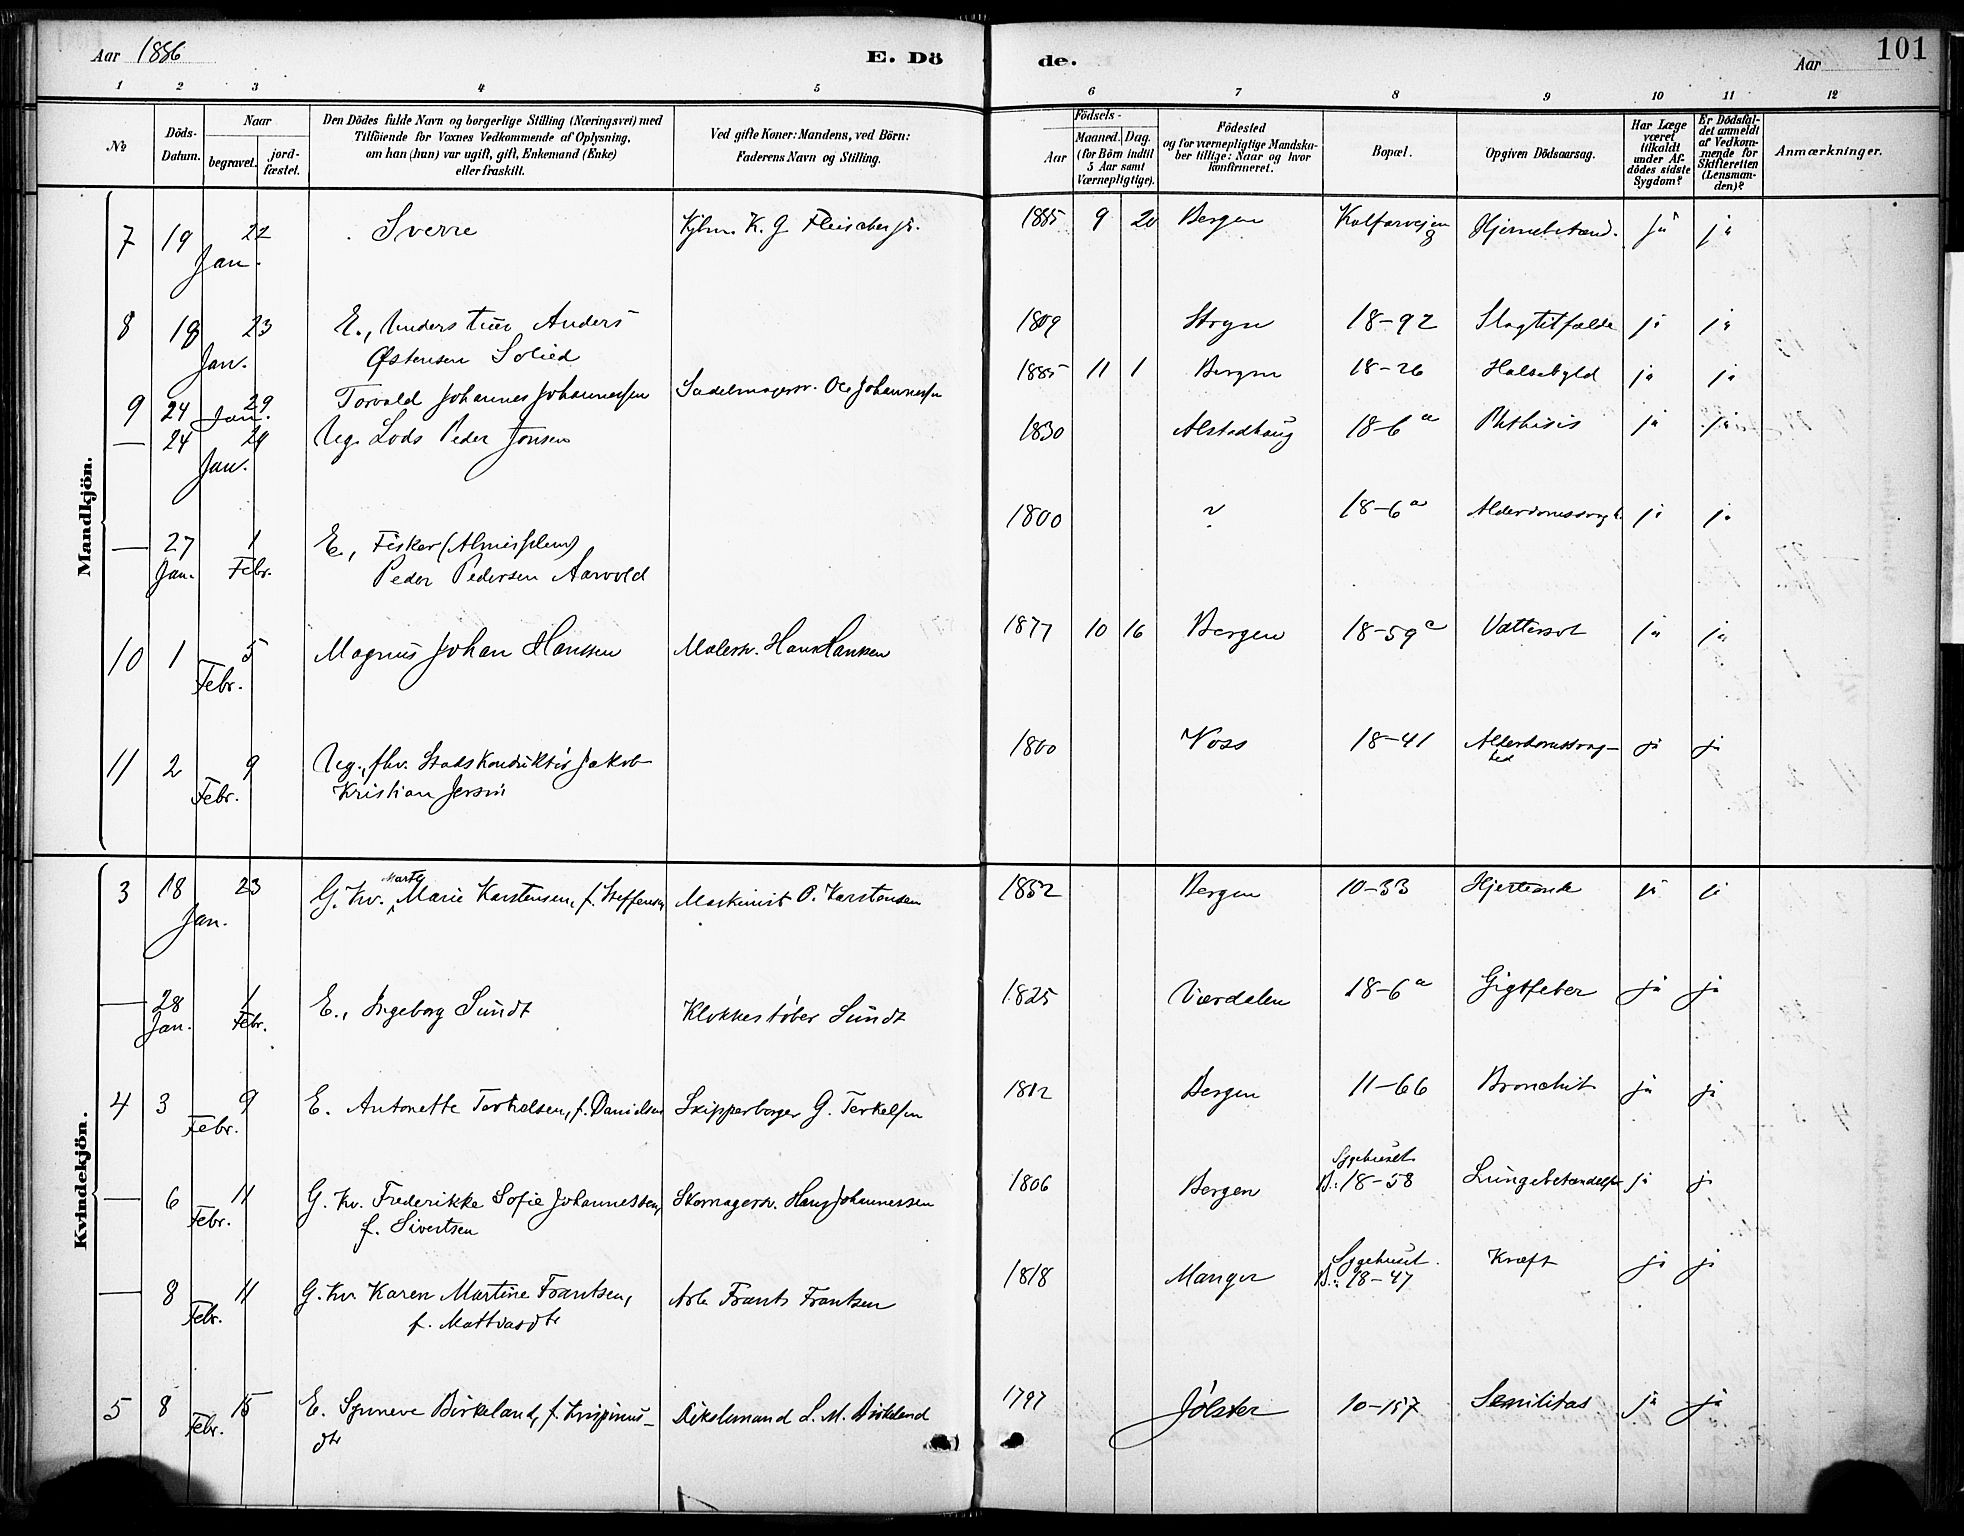 Aar 1886 E. Dö de. Aar 101
1 2 3 4 5 6 7 8 9 10 11 12
№ Döds-Datum. Naar begravet. jord-fæstet. Den Dödes fulde Navn og borgerlige Stilling (Næringsvei) med Tilföiende for Voxnes Vedkommende af Oplysning, om han (hun) var ugift, gift, Enkemand (Enke) eller fraskilt. Ved gifte Koner: Mandens, ved Börn: Faderens Navn og Stilling. Födsels- Aar Maaned. Dag. (for Börn indtil 5 Aar samt Værnepligtige). Födested og for værnepligtige Mandska-ber tillige: Naar og hvor konfirmeret. Bopæl. Opgiven Dödsaarsag. Har Læge været tilkaldt under Af-dödes sidste Sygdom? Er Dödsfal-det anmeldt af Vedkom-mende for Skifteretten (Lensman-den)? Anmærkninger.
Mandkjön.
7 19 22 Jan. Sverre Kjbm. K. G. Fleischer jr. 1885 9 20 Bergen Kalfarvejen 8 Hjernebetænd. ja ja
8 18 23 Jan. E., Anders Østensen Solied 1809 Stryn 18-92 Slagtilfælde ja ja
9 24 29 Jan. Torvald Johannes Johannessen Sadelmagersv. Ole Johannessen 1885 11 1 Bergen 18-26 Halsebyld ja ja
— 24 29 Jan. Ug. Lods Peder Jonsen 1830 Alstadhaug 18-6a Phthisis ja ja
— 27 Jan. 1 Febr. E., Fisker (Almislem) Peder Pedersen Aarvold 1800 ? 18-6a Alderdomssvagh. ja ja
10 1 5 Febr. Magnus Johan Hanssen Malersv. Hans Hansen 1877 10 16 Bergen 18-59c Vattersot ja ja
11 2 9 Febr. Ug., fhv. Stadskonduktør Jakob Kristian Jersin 1800 Voss 18-41 Alderdomssvag-hed ja ja
Kvindekjön.
3 18 23 Jan. G. Kv. Marthe Marie Karstensen, f. Steffensen Maskinist O. Karstensen 1852 Bergen 10-33 Hjerteonde ja ja
— 28 Jan. 1 Febr. E., Ingeborg Sundt Klokkestøber Sundt 1825 Værdalen 18-6a Gigtfeber ja ja
4 3 9 Febr. E. Antonette Terkelsen, f. Danielsen Skipperborger G. Terkelsen 1812 Bergen 11-66 Bronchit ja ja
— 6 11 Febr. G. Kv. Frederikke Sofie Johannessen, f. Sivertsen Skomagersv. Hans Johannessen 1806 Bergen Sygehuset B.: 18-58 Lungebetændelse ja ja
— 8 11 Febr. G. Kv Karen Martine Frantsen, f. Mattiasdtr Arb. Frants Frantsen 1818 Manger Sygehuset. B.: 18-47 Kræft ja ja
5 8 15 Febr. E. Synneve Birkeland, f. Krispinus-dtr L. M. Birkeland 1797 Jølster 10-157 Senilitas ja ja